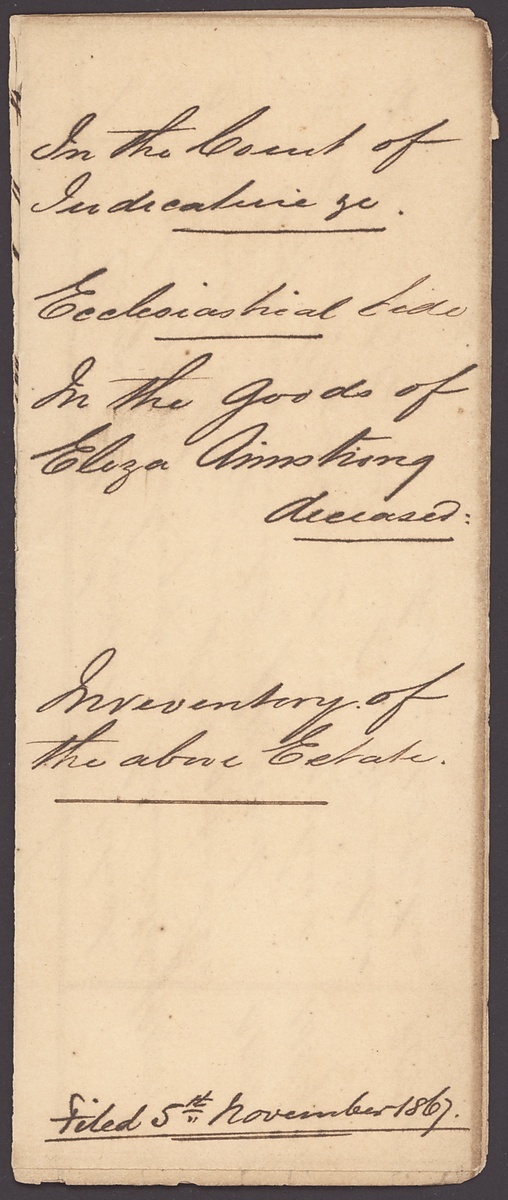 In the Court of
Judicature &c.
Ecclesiastical Side
In the Goods of
Eliza Armstrong
deceased:
Inveventory of
the above Estate.
Filed 5th November 1867.